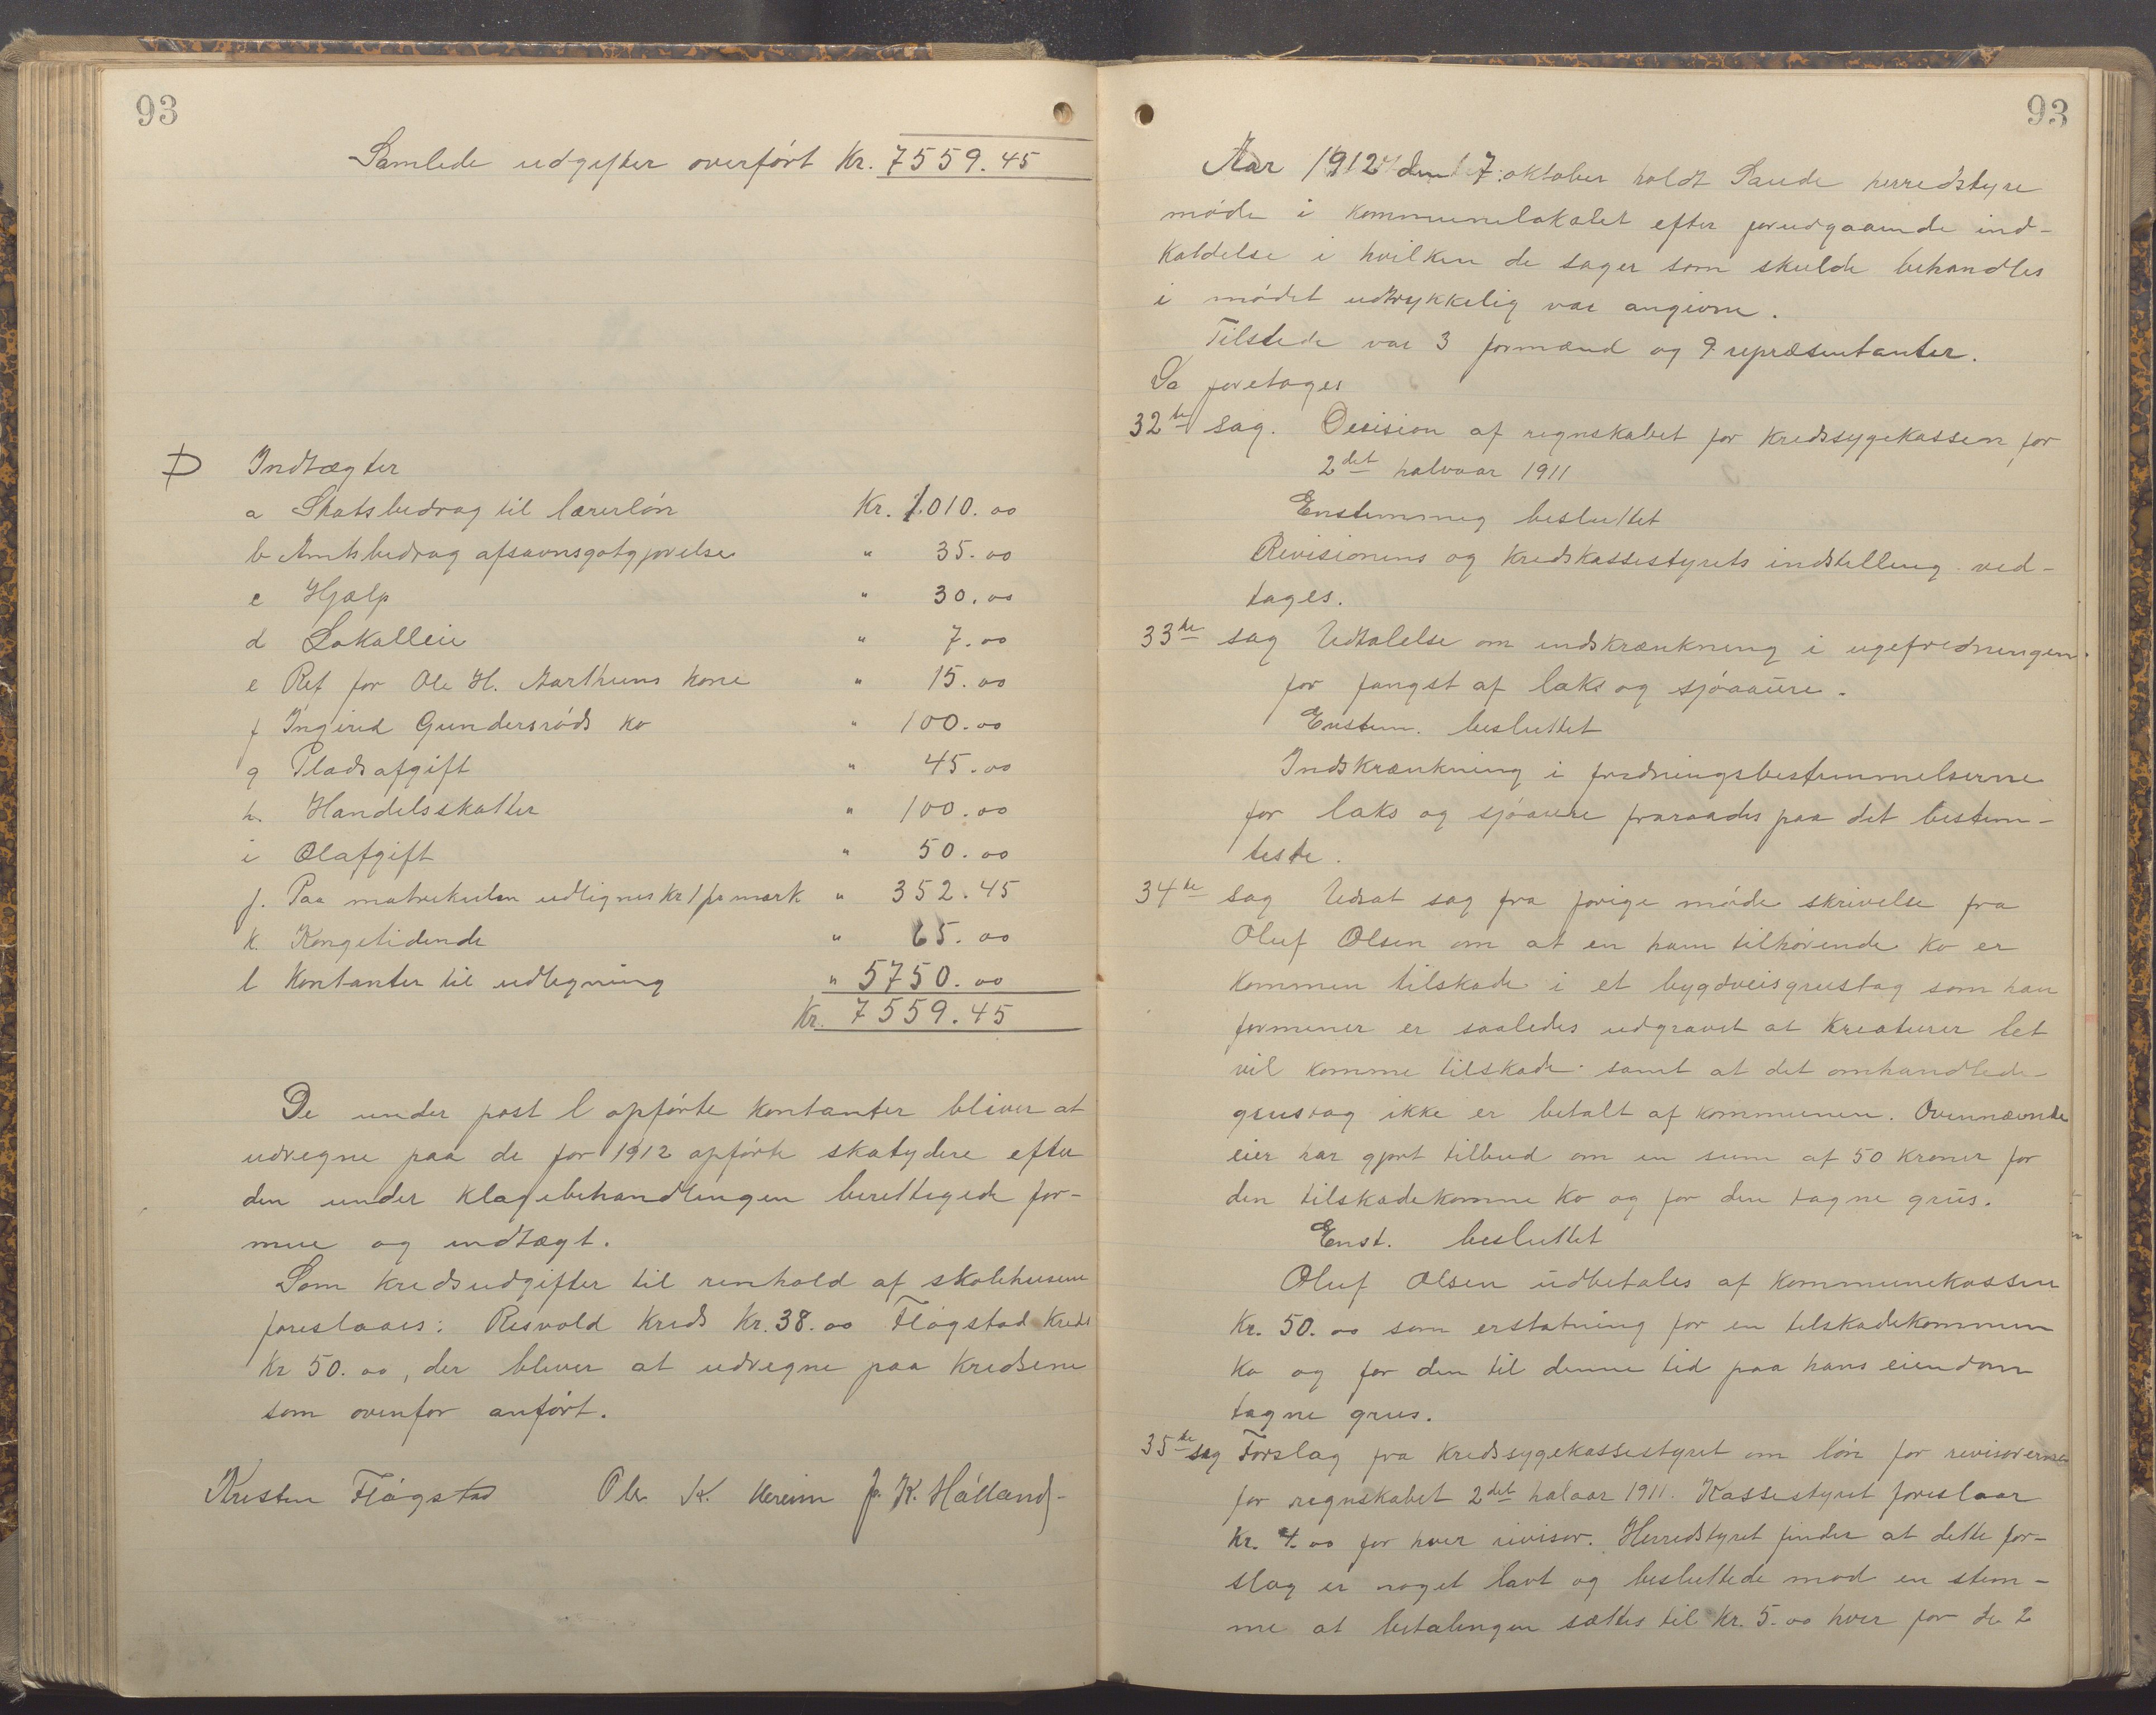 93
Samlede udgifter overført Kr. 7559.45
D Indtægter
a Skatsbidrag til lærerløn Kr. 1010.00
b Amtsbidrag afsavnsgotgjørelse " 35.00
c Hjælp " 30.00
d Lokalleie " 7.00
e Ref for Ole H. Aarthuns kone " 15.00
f Ingired Gundersrøds ko " 100.00
g Pladsafgift " 45.00
h. Handelsskatter " 100.00
i Ølafgift " 50.00
j. Paa matrikulen udlignes kr 1 pr mark " 352.45
k. Kongetidende " 65.00
l Kontanter til udligning " 5750.00
Kr. 7559.45
De under post l opførte kontanter bliver at
udregne paa de for 1912 opførte skatydere efter
den under klagebehandlingen berettigede for-
mue og indtægt.
Som kredsudgifter til renhold af skolehusene
foreslaaes: Risvold kreds kr. 38.00 Fløgstad kreds
kr 50.00, der bliver at udregne paa kredsene
som ovenfor anført.
Kristen Fløgstad Ole K. Hereim J. K. Håland
93
Aar 1912 den 7. oktober holdt Saude herredstyre
møde i kommunelokalet efter forudgaaende ind-
kaldelse i hvilken de sager som skulde behandles
i mødet udtrykkelig var angivne.
Tilstede var 3 formænd og 9 repræsentanter.
Da foretages
32te sag. Decision af regnskabet for kredssygekassen for
2det halvaar 1911
Enstemmig besluttet
Revisionens og kredskassestyrets indstilling ved-
tages.
33te sag Udtalelse om indskrænkning i ugefredningen
for fangst af laks og sjøaaure.
Enstem. besluttet
Indskrænkning i fredningsbestemmelserne
for laks og sjøaure fraraades paa det bestem-
teste.
34te sag Udsat sag fra forige møde skrivelse fra
Oluf Olsen om at en ham tilhørende ko er
kommen tilskade i et bygdveisgrustag som han
formener er saaledes udgravet at kreaturer let
vil komme tilskade samt at det omhandlede
grustag ikke er betalt af kommunen. Ovennævnte
eier har gjort tilbud om en sum af 50 kroner for
den tilskadekomne ko og for den tagne grus.
Enst. besluttet
Oluf Olsen udbetales af kommunekassen
Kr. 50.00 som erstatning for en tilskadekommen
ko og for den til denne tid paa hans eiendom
tagne grus.
35te sag Forslag fra kredssygekassestyret om løn for revisorerne
for regnskabet 2det halaar 1911. Kassestyret foreslaar
kr. 4.00 for hver revisor. Herredstyret finder at dette for-
slag er noget lavt og besluttede mod en stem-
me at betalingen sættes til Kr. 5.00 hver for de 2